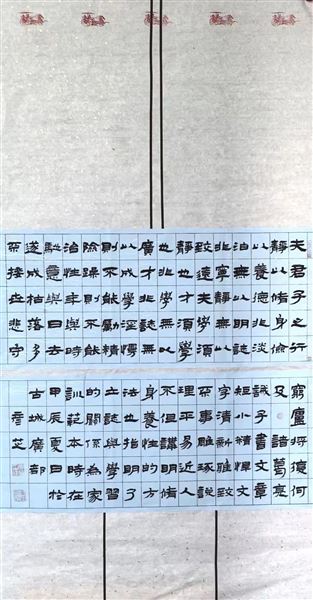 夫君子之行
靜以修身儉
以養德非淡
泊無以明誌
非寧靜無以
致遠夫學須
靜也才須學
也非學無以
廣才非誌無
以成學淫慢
則不能勵精
險躁則不能
治性年與時
馳意與日去
遂成枯落多
不接世悲守
窮廬將復何
及 諸葛亮
誡子書文章
短小精悍文
字清新雅致
不事雕琢說
理平易近人
不但講明修
身養性的方
法也指明了
立誌與學習
的關係為家
訓的範本時在
甲辰夏日於
古城廣
芝